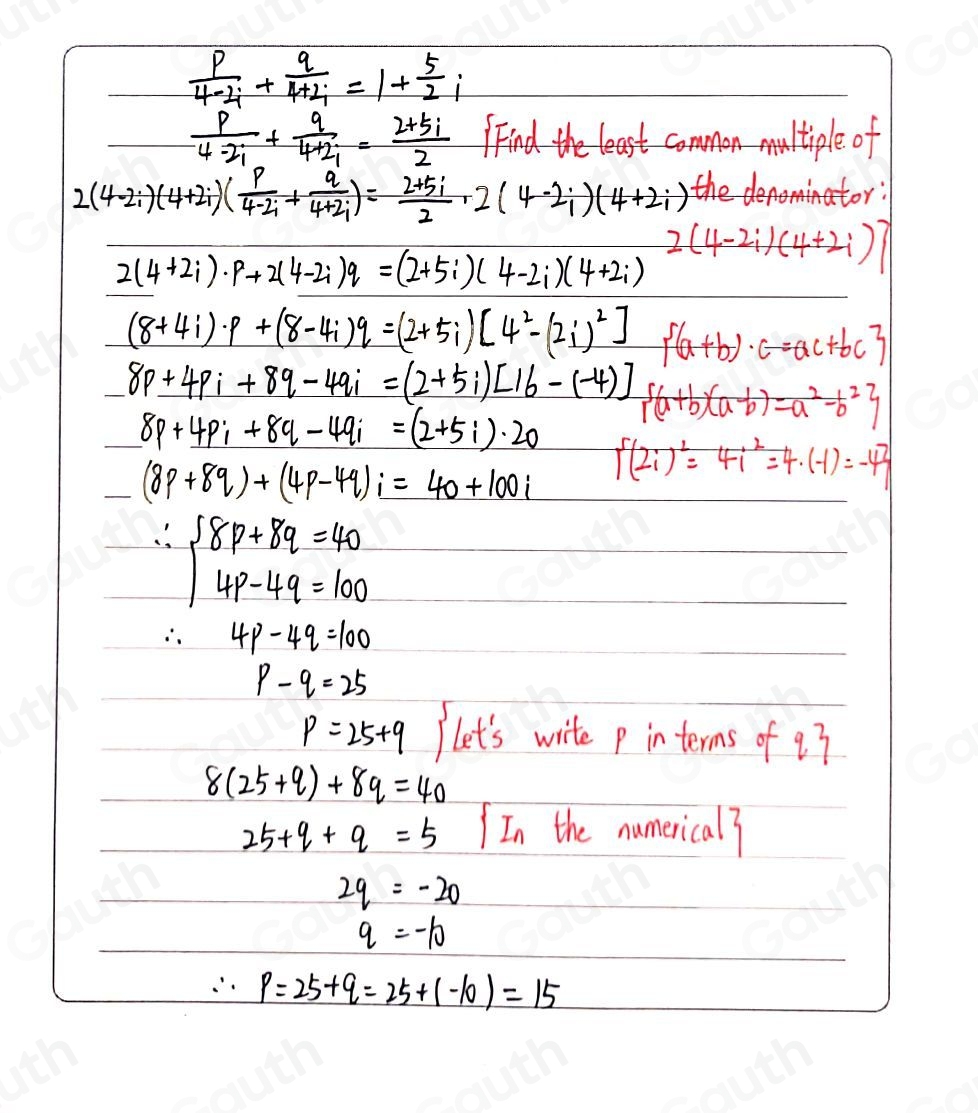 p/(4-2i) + q/(4+2i) = 1 + 5/2 i
p/(4-2i) + q/(4+2i) = (2+5i)/2 {Find the least common multiple of
2(4-2i)(4+2i)(p/(4-2i) + q/(4+2i)) = (2+5i)/2 · 2(4-2i)(4+2i) the denominator:
2(4-2i)(4+2i)}
2(4+2i)·p+2(4-2i)q = (2+5i)(4-2i)(4+2i)
(8+4i)·p + (8-4i)q = (2+5i)[4²-(2i)²] {(a+b)·c=ac+bc}
8p+4pi+8q-4qi = (2+5i)[16-(-4)] {(a+b)(a-b)=a²-b²}
8p+4pi+8q-4qi = (2+5i)·20
{(2i)²= 4i²=4·(-1)=-4}
(8p+8q)+(4p-4q)i = 40+100i
∴ {8p+8q=40
4p-4q=100
∴ 4p-4q=100
p-q=25
p=25+q {Let's write p in terms of q}
8(25+q)+8q=40
25+q+q = 5 {In the numerical}
2q = -20
q = -10
∴ p=25+q=25+(-10)=15
Gauth